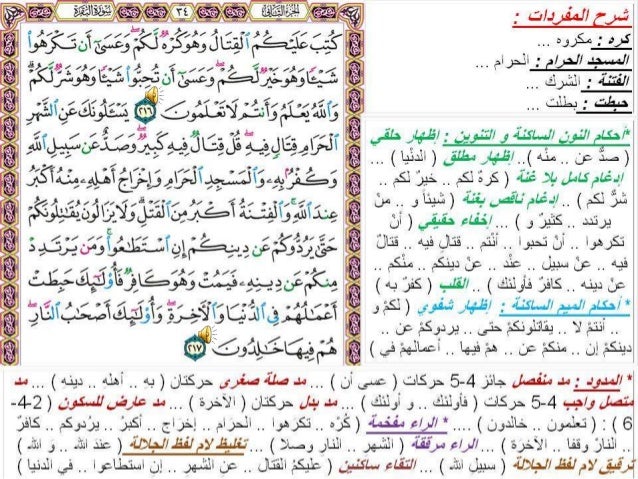 الجزء الثاني ٣٤ سورة البقرة
كُتِبَ عَلَيْكُمُ ٱلْقِتَالُ وَهُوَ كُرْهٌ لَّكُمْ وَعَسَىٰٓ أَن تَكْرَهُوا۟
شَيْـًٔا وَهُوَ خَيْرٌ لَّكُمْ وَعَسَىٰٓ أَن تُحِبُّوا۟ شَيْـًٔا وَهُوَ شَرٌّ لَّكُمْ
وَٱللَّهُ يَعْلَمُ وَأَنتُمْ لَا تَعْلَمُونَ ٢١٦ يَسْـَٔلُونَكَ عَنِ ٱلشَّهْرِ
ٱلْحَرَامِ قِتَالٍ فِيهِ قُلْ قِتَالٌ فِيهِ كَبِيرٌ وَصَدٌّ عَن سَبِيلِ ٱللَّهِ
وَكُفْرٌۢ بِهِۦ وَٱلْمَسْجِدِ ٱلْحَرَامِ وَإِخْرَاجُ أَهْلِهِۦ مِنْهُ أَكْبَرُ
عِندَ ٱللَّهِ وَٱلْفِتْنَةُ أَكْبَرُ مِنَ ٱلْقَتْلِ وَلَا يَزَالُونَ يُقَـٰتِلُونَكُمْ
حَتَّىٰ يَرُدُّوكُمْ عَن دِينِكُمْ إِنِ ٱسْتَطَـٰعُوا۟ وَمَن يَرْتَدِدْ
مِنكُمْ عَن دِينِهِۦ فَيَمُتْ وَهُوَ كَافِرٌ فَأُو۟لَـٰٓئِكَ حَبِطَتْ
أَعْمَـٰلُهُمْ فِى ٱلدُّنْيَا وَٱلْـَٔاخِرَةِ وَأُو۟لَـٰٓئِكَ أَصْحَـٰبُ ٱلنَّارِ
هُمْ فِيهَا خَـٰلِدُونَ ٢١٧
شرح المفردات :
كره : مكروه ...
المسجد الحرام : الحرام ...
الفتنة : الشرك ...
حبطت : بطلت ...
*أحكام النون الساكنة و التنوين : إظهار حلقي
( صدٌّ عن .. منْه ).. إظهار مطلق ( الدنْيا ) ...
إدغام كامل بلا غنة ( كرهٌ لكم .. خيرٌ لكم ..
شرٌّ لكم ) .. إدغام ناقص بغنة ( شيئاً و .. منْ
يرتدد .. كبيرٌ و ) ... إخفاء حقيقي ( أنْ
تكرهوا .. أنْ تحبوا .. أنْتم .. قتالٍ فيه .. قتالٌ
فيه .. عنْ سبيل .. عنْد .. عنْ دينكم .. منْكم ..
عنْ دينه .. كافرٌ فأولئك ) .. القلب ( كفرٌ به )
* أحكام الميم الساكنة : إظهار شفوي ( لكمْ و
.. أنتمْ لا .. يقاتلونكمْ حتى .. يردوكمْ عن ..
دينكمْ إن .. منكمْ عن .. همْ فيها .. أعمالهمْ في )
* المدود : مد منفصل جائز 4-5 حركات ( عسى أن ) ... مد صلة صغرى حركتان ( به .. أهله .. دينه ) ... مد
متصل واجب 4-5 حركات ( فأولئك ... و أولئك ) ... مد بدل حركتان ( الآخرة ) ... مد عارض للسكون ( 2-4-
6 ) : ( تعلمون .. خالدون ) .... * الراء مفخمة ( كُرْه .. تكرهوا .. الحرَام .. إخرَاج .. أكبرُ .. يرُدوكم .. كافرٌ
.. النارْ وقفا .. الآخرَة ) ... الراء مرققة ( الشهرِ .. النارِ وصلا ) ... تغليظ لام لفظ الجلالة ( عندَ الله .. وَ الله )
ترقيق لام لفظ الجلالة ( سبيلِ الله ) ... التقاء ساكنين ( عليكمُ القتال .. عنِ الشهر .. إنِ استطاعوا .. في الدنيا )